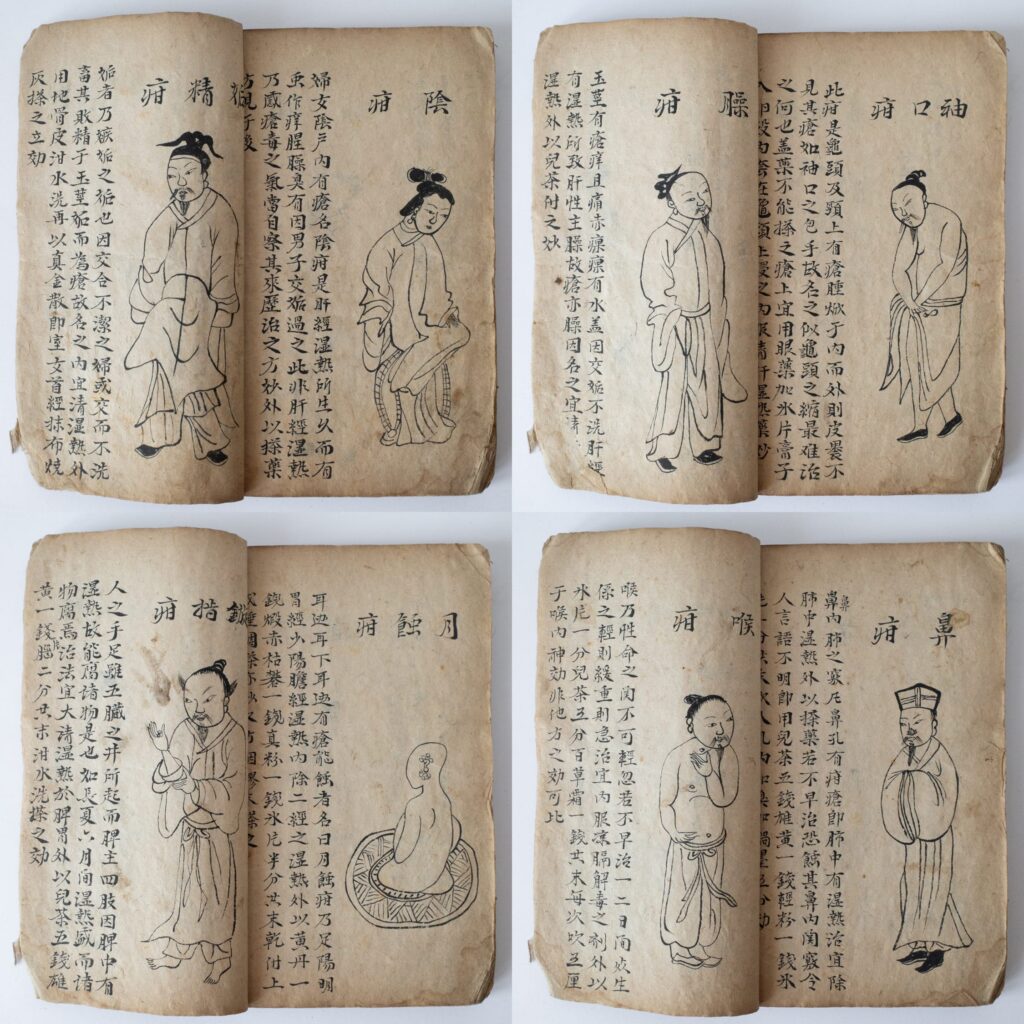 陰疳
婦女陰戶內有瘡名陰疳是肝經濕熱所生久而有
虫作痒腥臊臭有因男子交妬過之此非肝經濕熱
乃感瘡毒之氣當自察其來歷治之方妙外以搽藥
方見于後
精疳
妬者乃嫉妬之妬也因交合不潔之婦或交而不洗
畜其敗精于玉莖妬而為瘡故名之內宜清濕熱外
用地骨皮泔水洗再以真金散即室女首經抹布燒
灰搽之立効
袖口疳
此疳是龜頭及頸上有瘡腫焮于內而外則皮裹不
見其瘡如袖口之包手故名之似龜頭之縮最難治
之何也盖藥不能搽之瘡上宜用眼藥加氷片膏子
臊疳
玉莖有瘡痒且痛赤瘭瘭有水盖因交妬不洗肝經
有濕熱所致肝性主臊故瘡亦臊因名之宜清
濕熱外以兒茶付之妙
月蝕疳
耳边耳下耳边有瘡能蝕者名曰月蝕疳乃足陽明
胃經少陽膽經濕熱內除二經之濕熱外以黃丹一
錢煅赤枯礬一錢真粉一錢氷片半分共末乾付上
指疳
人之手足雖五臟之井所起而脾主四肢因脾中有
濕熱故能腐諸物是也如長夏六月间濕熱盛而諸
物腐焉治法宜大清濕熱於脾胃外以兒茶五錢雄
黃一錢腦二分共末泔水洗搽之効
鼻疳
鼻內肺之竅凡鼻孔有疳瘡即肺中有濕熱治宜除
肺中濕熱外以搽藥若不早治恐蝕其鼻內関竅令
人言語不明即用兒茶五錢雄黃一錢輕粉一錢氷
喉疳
喉乃性命之関不可輕忽若不早治一二日间死生
係之輕則緩重則急治宜內服凉膈解毒之剂外以
氷片一分兒茶五分百草霜一錢共末每次吹五厘
于喉內神効非他方之効可比